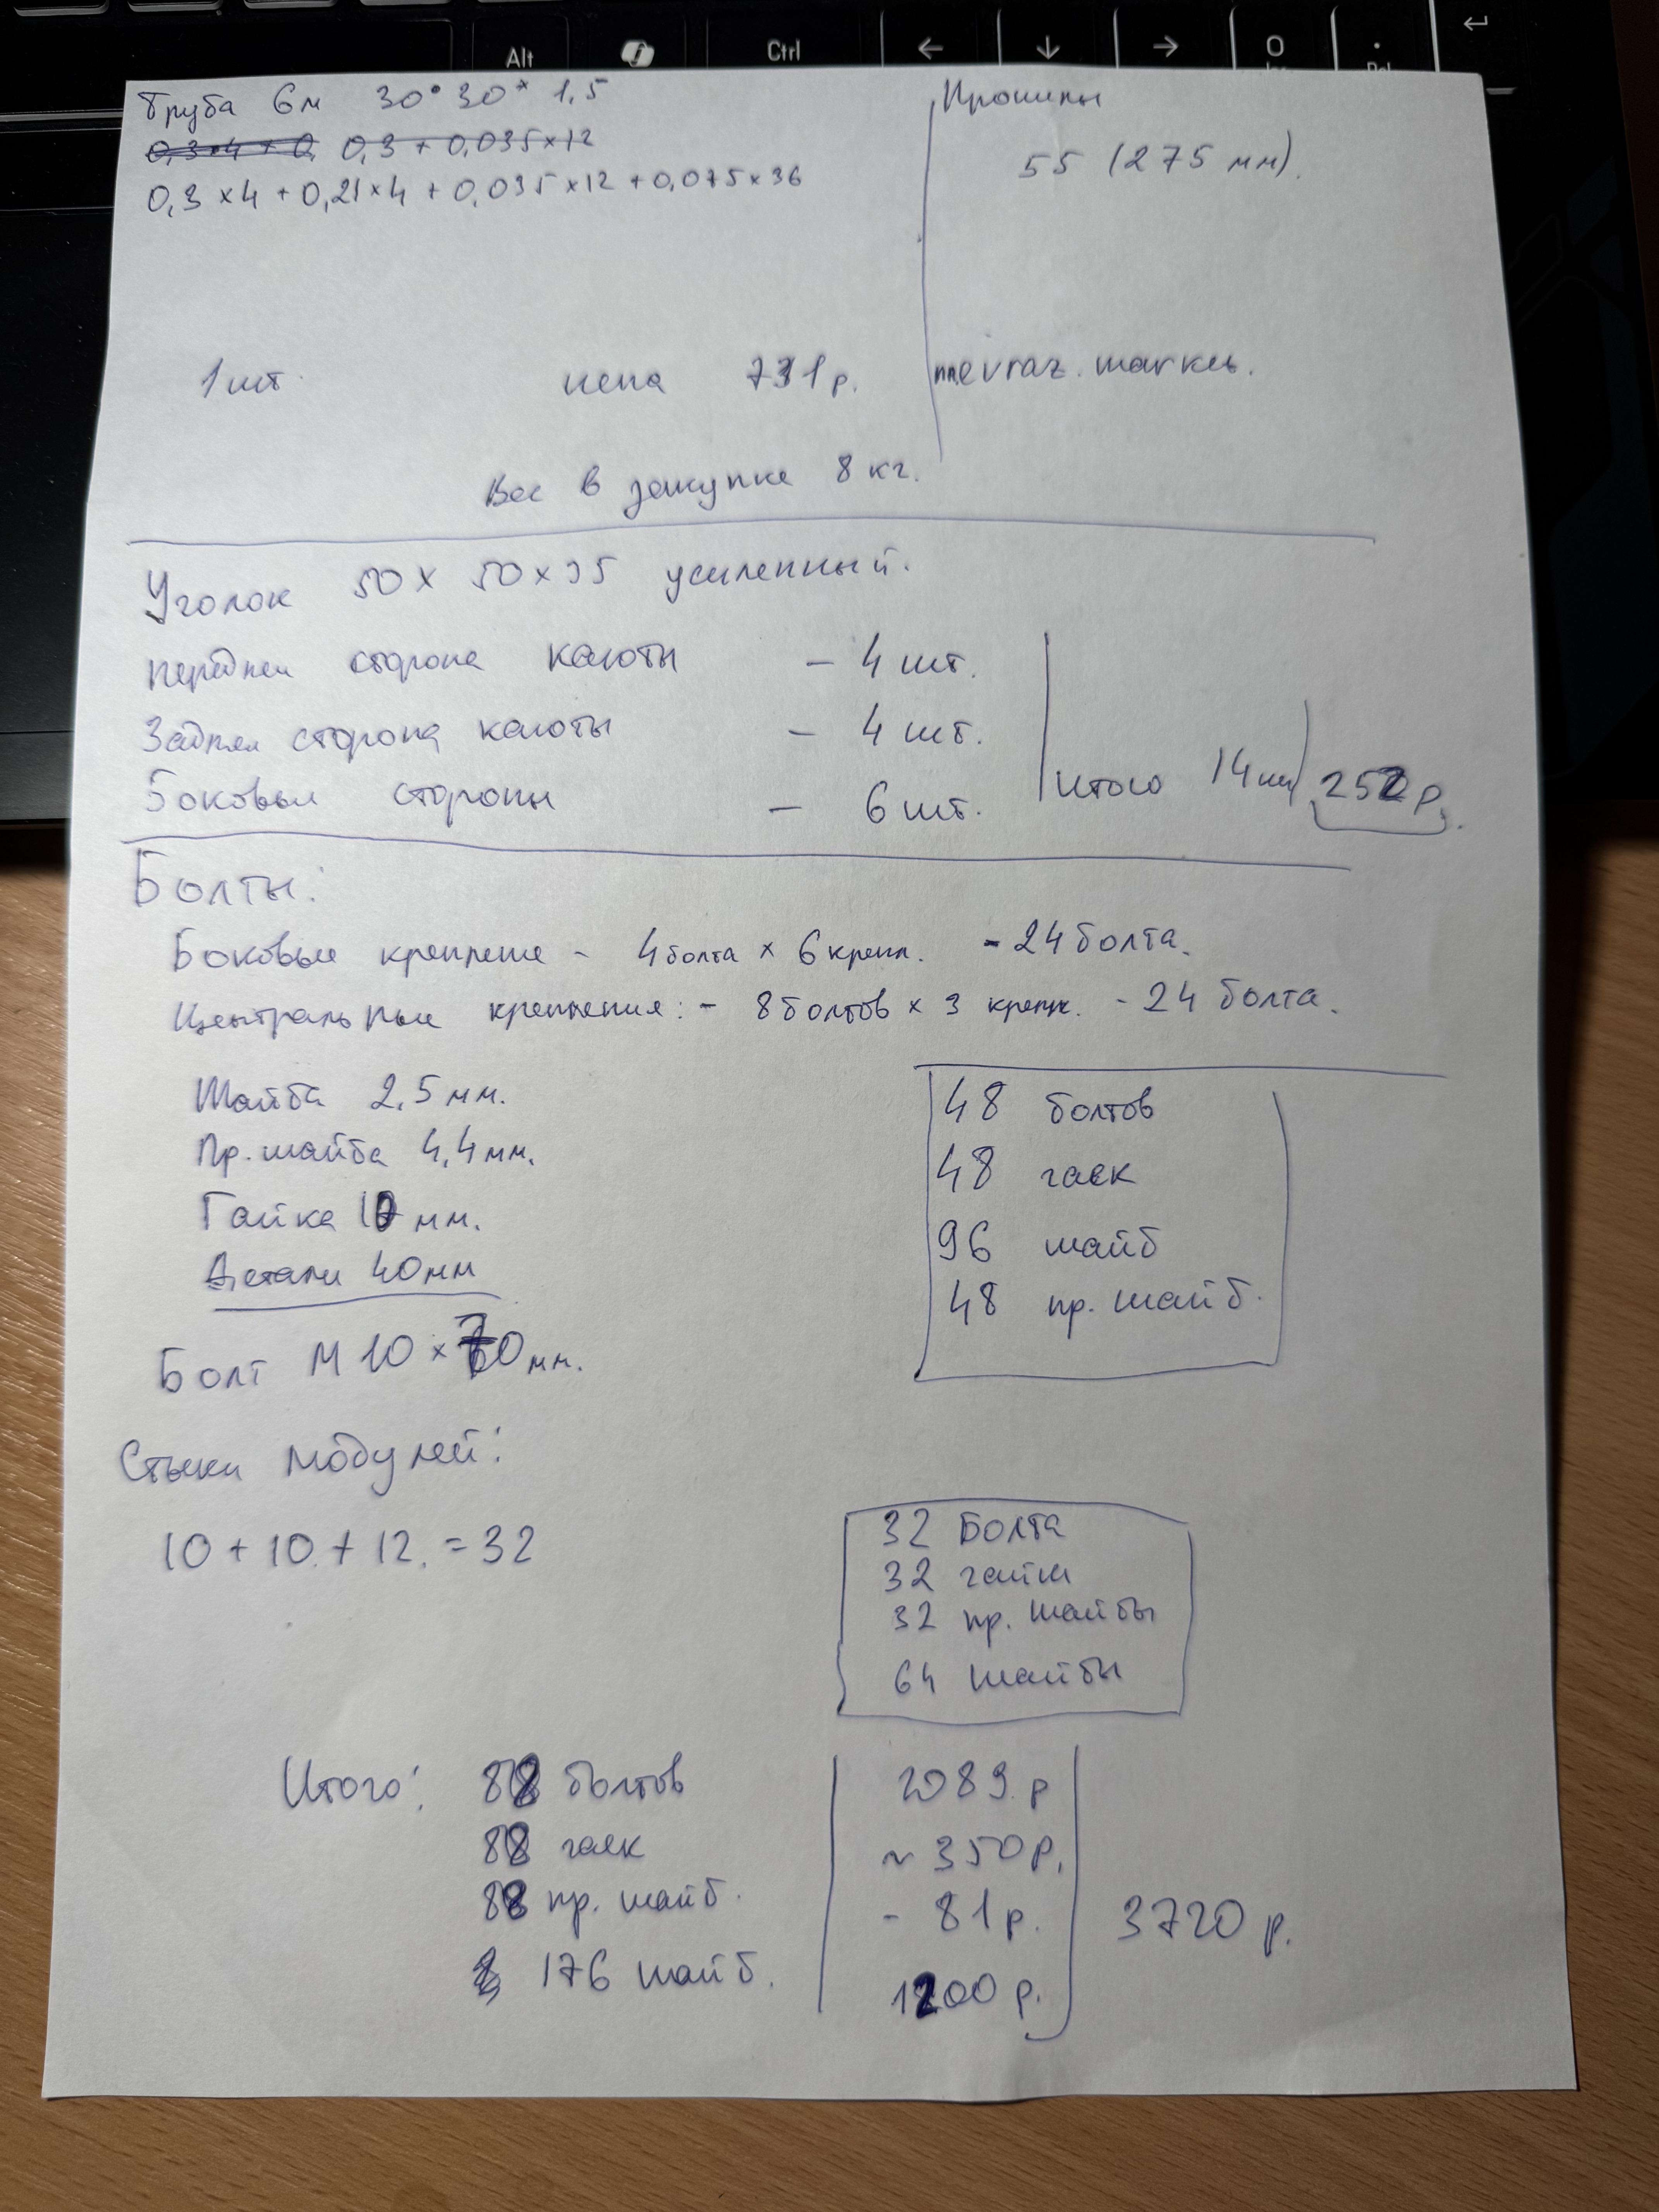 Alt
Ctrl
←
↓
→
0
.
↵
Труба 6м 30*30*1,5
0,3×4 + 0, 0,3 + 0,035×12
0,3 ×4 + 0,21×4 + 0,035 ×12 + 0,075×36
Прошипы
55 (275 мм).
1 шт. цена 731 р. evraz. market.
Вес в закупке 8 кг.
Уголок 50 х 50 х 35 усиленный.
передняя сторона каюты – 4 шт.
Задняя сторона каюты – 4 шт.
Боковые стороны – 6 шт.
Итого 14 шт 252 р.
Болты:
Боковые крепление - 4 болта × 6 крепл. - 24 болта.
Центральные крепления: - 8 болтов × 3 крепл. - 24 болта.
Шайба 2,5 мм.
Пр. шайба 4,4 мм.
Гайка 10 мм.
Детали 40 мм
Болт М 10 × 70 мм.
48 болтов
48 гаек
96 шайб
48 пр. шайб.
Стыки модулей:
10 + 10 + 12. = 32
32 Болта
32 гайки
32 пр. шайбы
64 шайбы
Итого: 88 болтов 2089 р
88 гаек ~ 350 р.
88 пр. шайб. - 81 р.
176 шайб. 1200 р.
3720 р.